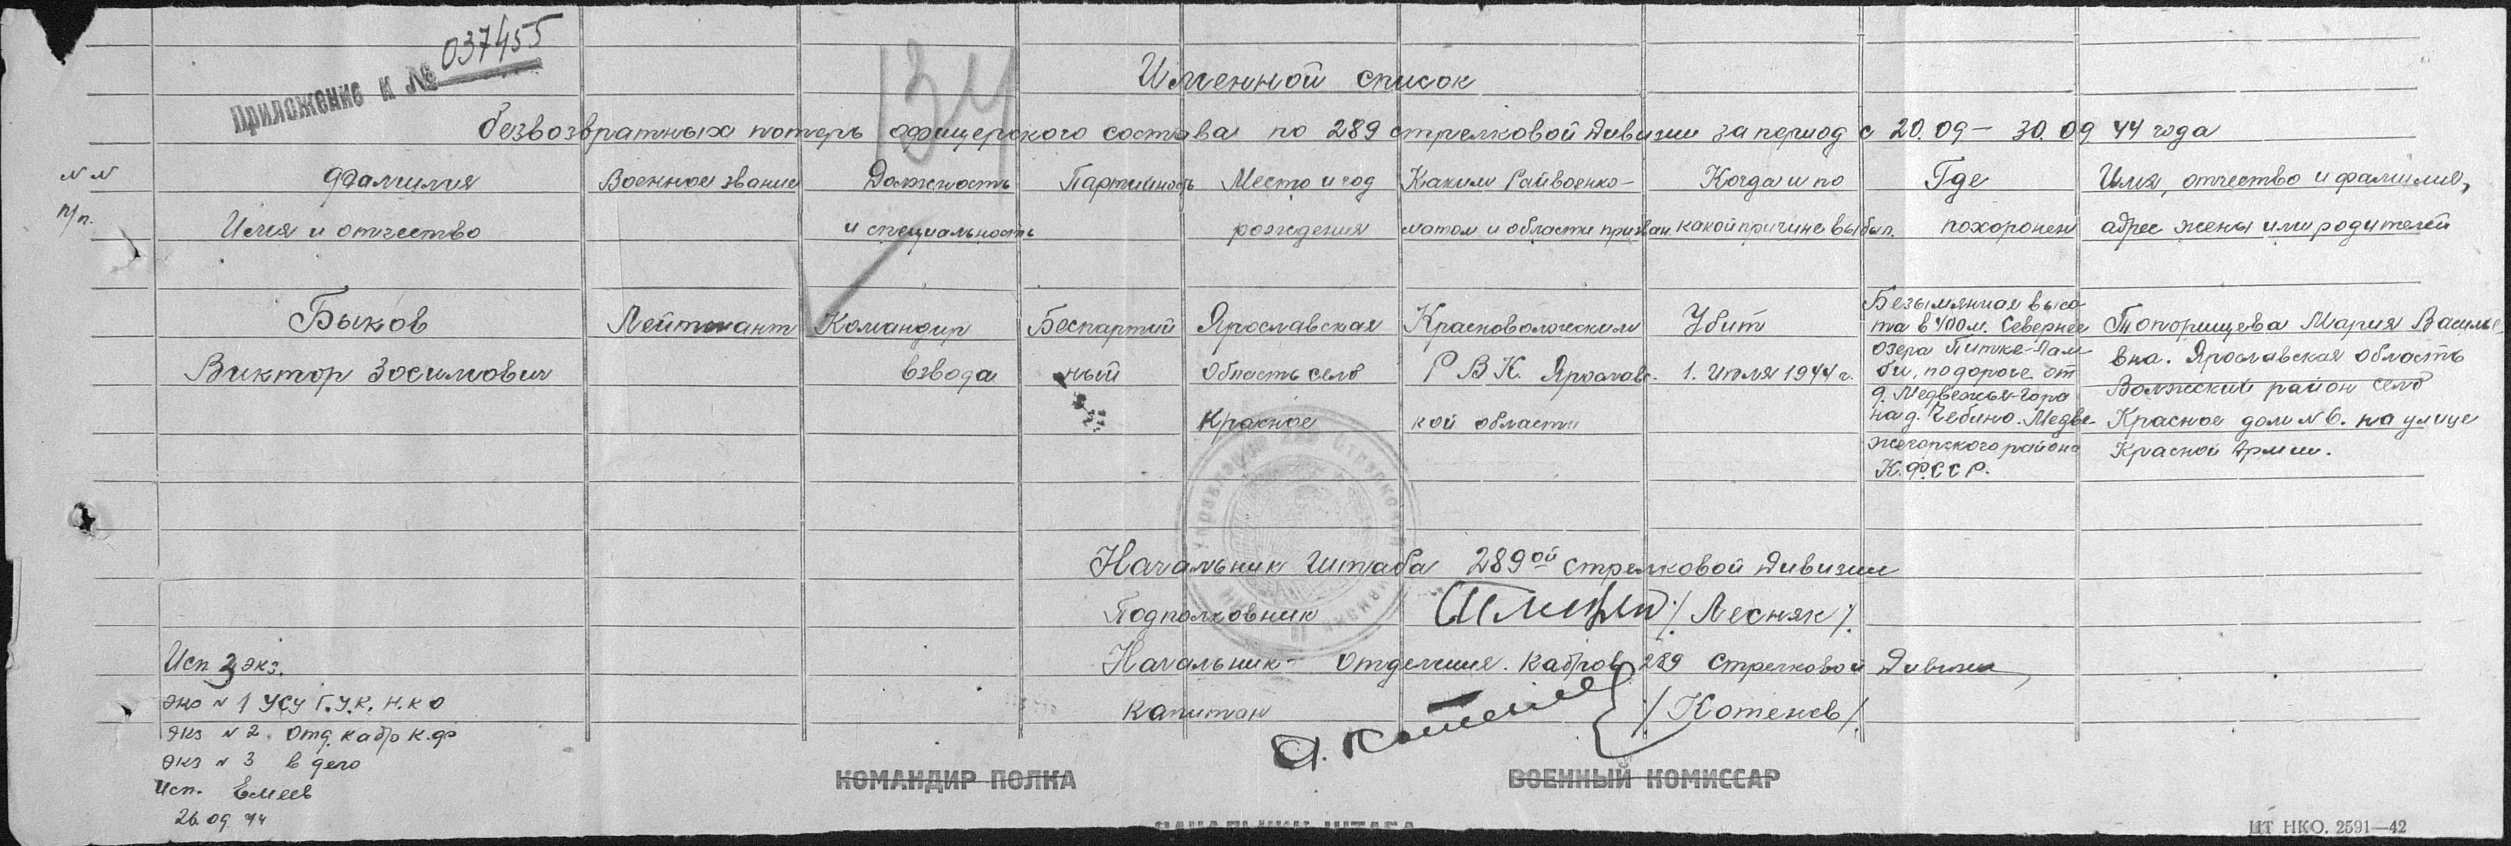 Приложение к № 037455
134
Именной список
безвозвратных потерь офицерского состава по 289 стрелковой дивизии за период с 20.09 – 30.09 44 года
№ № п/п.
Фамилия
Имя и отчество
Военное звание
Должность
и специальность
Партийность
Место и год
рождения
Каким Райвоенко-
матом и области призван
Когда и по
какой причине выбыл.
Где
похоронен
Имя, отчество и фамилия,
адрес жены или родителей
Быков
Виктор Зосимович
Лейтенант
Командир
взвода
Беспартий
ный
Ярославская
область село
Красное
РВК. Ярославс.
кой области
Убит
1. Июля 1944 г.
Безымянная высо
та в 400 м. Севернее
озера Питке-Лам
би, по дороге от
д. Медвежья-Гора
на д. Чебино. Медве-
жегорского района
К.Ф.С С Р.
Топорищева Мария Василье
вна. Ярославская область
район село
Красное дом № 6. на улице
Красной Армии.
Начальник Штаба 289ой стрелковой дивизии
Подполковник / Лесняк /
Начальник – отделения. кадров 289 стрелковой дивизии
Капитан / Котенев /
Исп 3 экз.
экз № 1 УСУ Г.У.К. Н.К О
экз № 2. Отд. кадр К.Ф
экз № 3 в дело
Исп.
26.09 44
КОМАНДИР ПОЛКА
ВОЕННЫЙ КОМИССАР
НАЧАЛЬНИК ШТАБА
ЦТ НКО. 2591—42